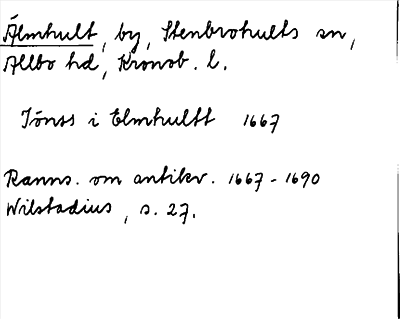 Älmhult, by, Stenbrohults sn,
Allbo hd, Kronob. l.
Jönss i Elmhultt 1667
Ranns. om antikv. 1667-1690
Wilstadius, s. 27.